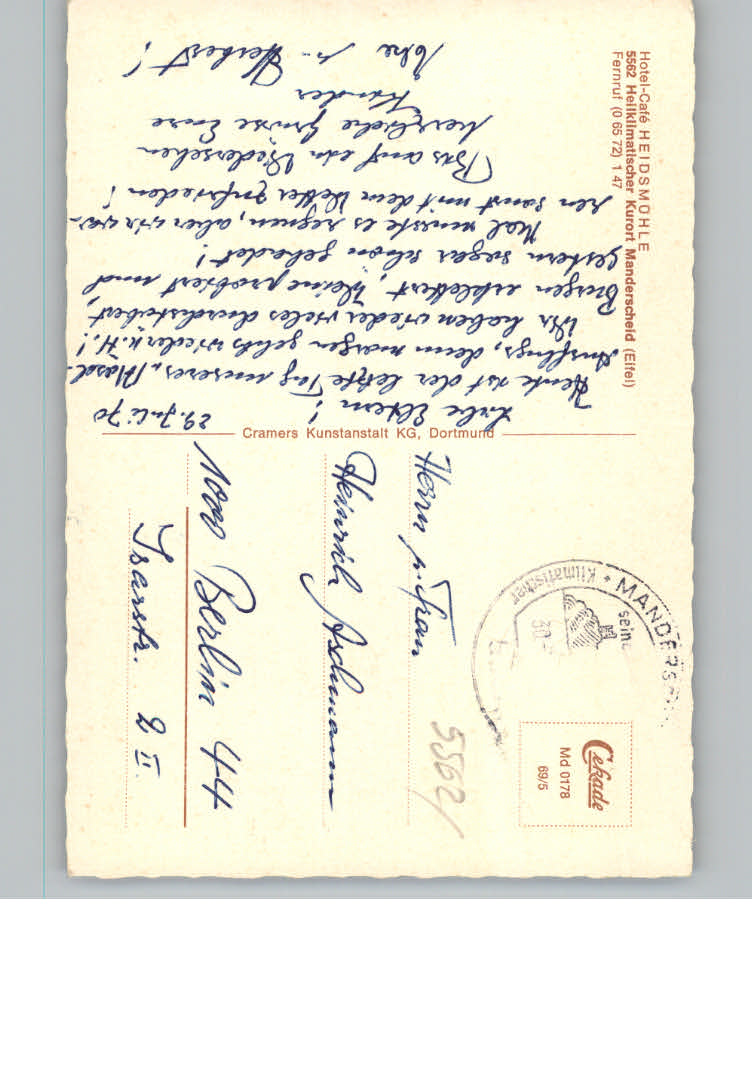 Hotel-Café HEIDSMÜHLE
5562 Heilklimatischer Kurort Manderscheid (Eifel)
Fernruf (0 65 72) 1 47
29. Juli 70
Liebe Eltern!
Heute ist der letzte Tag unseres
Ausflugs, denn morgen gehts wieder n. H.!
Wir haben wieder vieles durchstöbert,
Burgen erklettert, Weine probiert und
gestern sogar schon gebadet!
Mal musste es regnen, aber wir wa-
ren sonst mit dem Wetter zufrieden!
Bis auf ein Wiedersehen
herzliche Grüsse Eure
Kinder
Herbert!
Cramers Kunstanstalt KG, Dortmund
Herrn u. Frau
Heinrich Aschmann
1000 Berlin 44
Isarstr. 2 II.
5562
MANDERSCH
klimatischer
seine
30.
Cekade
Md 0178
69/5